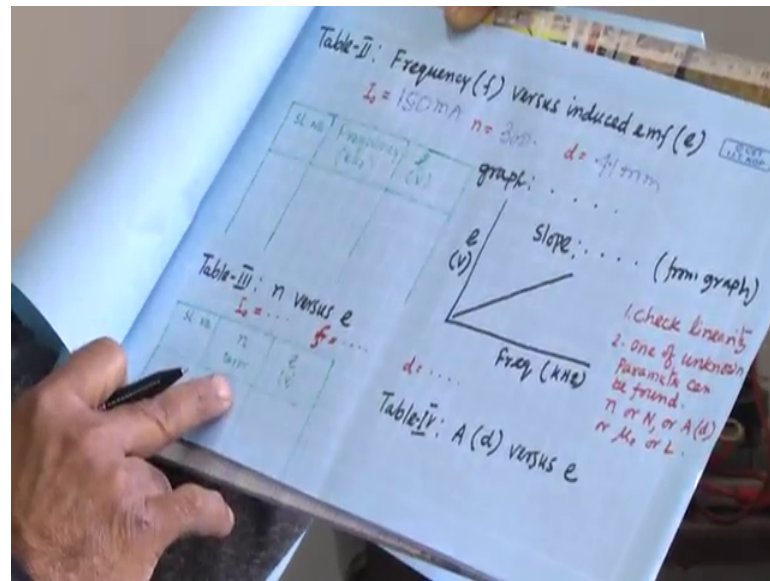 Table-II: Frequency (f) versus induced emf (e)
I₀ = 150mA n = 300. d = 41mm
Sl no. Frequency (kHz) e (V)
graph: . . . .
e (V)
Slope: . . . . (from graph)
Freq (kHz)
1. Check linearity
2. One of unknown
Parameter can
be found.
n or N, or A(d)
or μ₀ or L.
Table-III: n versus e
I₀ = .... f = ....
d = ....
Sl no. n e
Table-IV: A(d) versus e